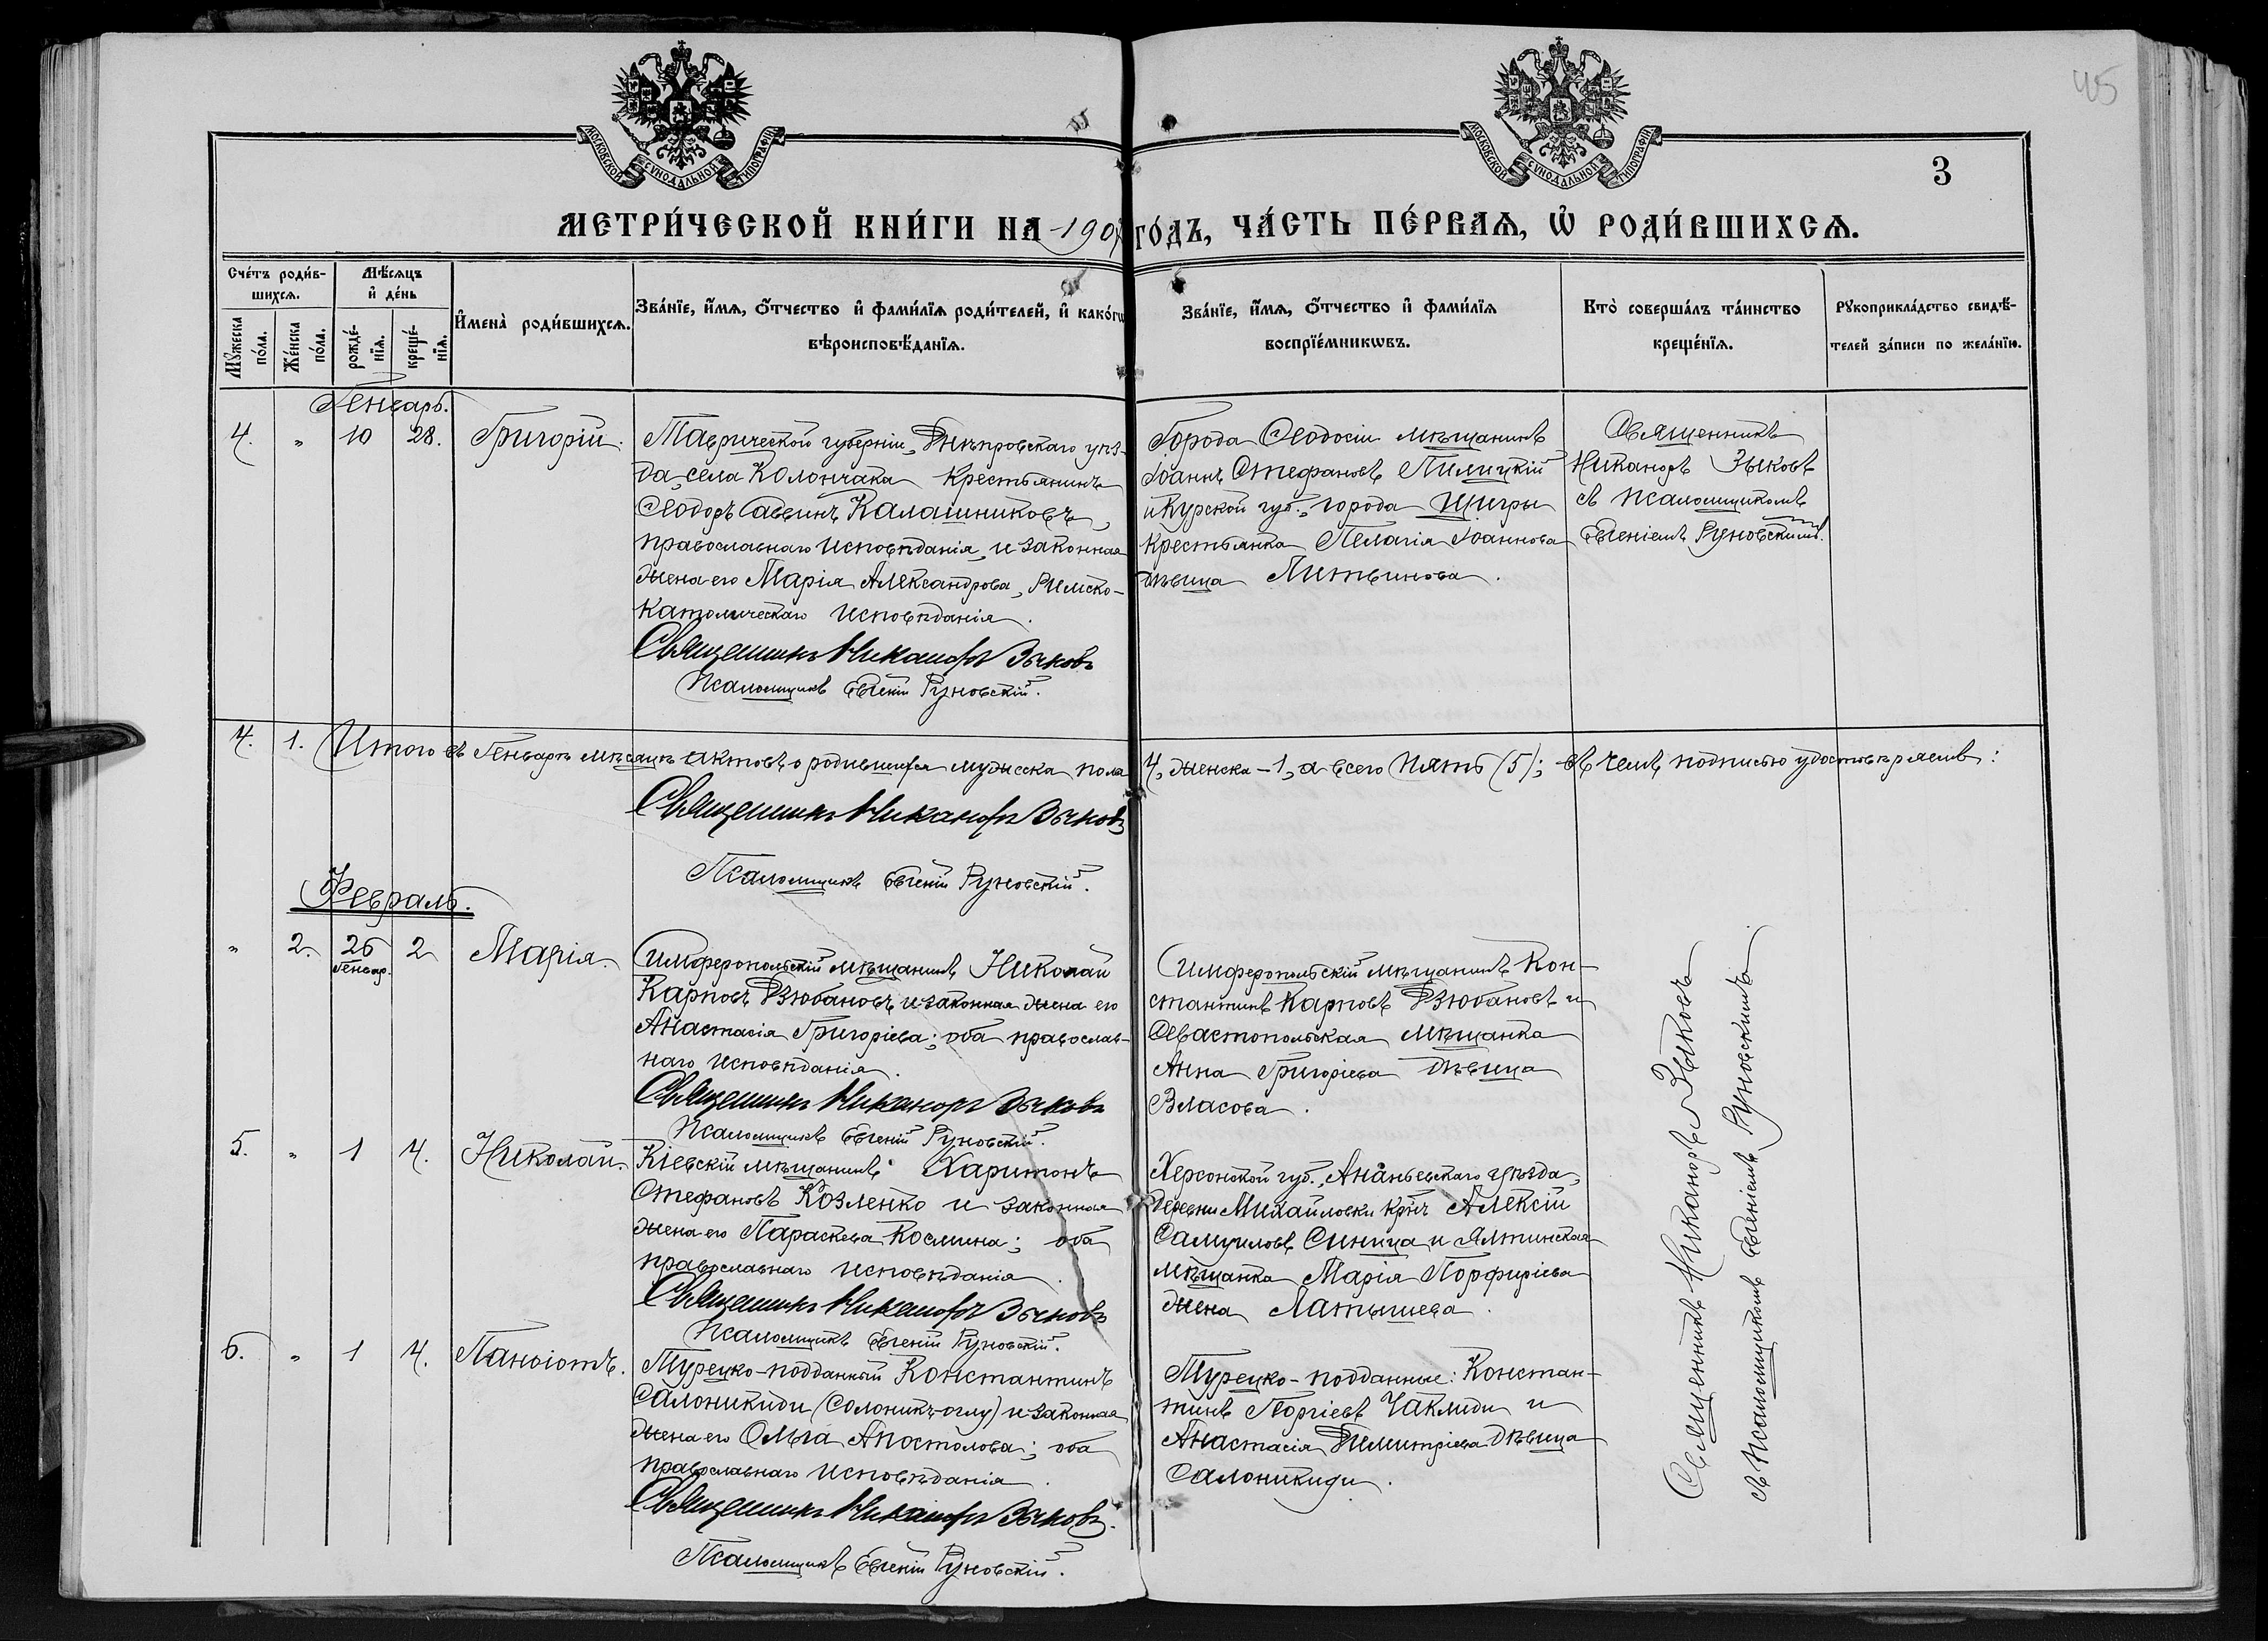 МОСКОВСКОЙ СѴНОДАЛЬНОЙ ТИПОГРАФІИ
МОСКОВСКОЙ СѴНОДАЛЬНОЙ ТИПОГРАФІИ
3
МЕТРИ́ЧЕСКОЙ КНИ́ГИ НА 190 ГО́ДЪ, ЧА́СТЬ ПЕ́РВАѦ, Ѡ҆ РОДИ́ВШИХСѦ.
Сче́тъ роди́в-
шихсѧ.
Мѣ́сѧцъ
и҆ де́нь
Мꙋ́жеска
по́ла.
Же́нска
по́ла.
рожде́-
нїѧ.
креще́-
нїѧ.
И҆мена̀ роди́вшихсѧ.
Зва́нїе, и҆́мѧ, ѻ҆́тчество и҆ фами́лїѧ роди́телей, и҆ како́гѡ
вѣроисповѣ́данїѧ.
Зва́нїе, и҆́мѧ, ѻ҆́тчество и҆ фами́лїѧ
воспрїе́мникѡвъ.
Кто̀ соверша́лъ та́инство
креще́нїѧ.
Рꙋкоприкла́дство свидѣ́-
телей за́писи по жела́нїю.
Генварь.
4. " 10 28. Григорій.
Таврической губерніи, Днѣпровскаго уѣз-
да, села Колончака крестьянинъ
Ѳеодоръ Саввинъ Калашниковъ,
православнаго исповѣданія, и законная
жена его Марія Александрова, Римско-
католическаго исповѣданія.
Священникъ Никаноръ Зыковъ
Псаломщикъ Евгеній Руновскій.
Города Ѳеодосіи мѣщанинъ
Іоаннъ Стефановъ Пилицкій
и Курской губ., города Щигры
крестьянка Пелагія Іоаннова
дѣвица Литвинова.
Священникъ
Никаноръ Зыковъ
съ псаломщикомъ
Евгеніемъ Руновскимъ.
4. 1. Итого въ Генварѣ мѣсяцѣ актовъ о родившихся мужеска пола 4, женска - 1, а всего пять (5); въ чемъ подписью удостовѣряемъ:
Священникъ Никаноръ Зыковъ
Псаломщикъ Евгеній Руновскій.
Февраль.
" 2. 26 генвар. 2 Марія.
Симферопольскій мѣщанинъ Николай
Карповъ Дзюбановъ и законная жена его
Анастасія Григоріева; оба православ-
наго исповѣданія.
Священникъ Никаноръ Зыковъ
Псаломщикъ Евгеній Руновскій.
Симферопольскій мѣщанинъ Кон-
стантинъ Карповъ Дзюбановъ и
Севастопольская мѣщанка
Анна Григоріева дѣвица
Власова.
5. " 1 4. Николай.
Кіевскій мѣщанинъ Харитонъ
Стефановъ Козленко и законная
жена его Параскева Космина; оба
православнаго исповѣданія.
Священникъ Никаноръ Зыковъ
Псаломщикъ Евгеній Руновскій.
Херсонской губ., Ананьевскаго уѣзда,
деревни Михайловки крнъ Алексій
Самуиловъ Синица и Ялтинская
мѣщанка Марія Порфиріева
жена Латышева.
6. " 1 4. Панаіотъ.
Турецко-подданный Константинъ
Салоникиди (Солоникъ-оглу) и законная
жена его Ольга Апостолова; оба
православнаго исповѣданія.
Священникъ Никаноръ Зыковъ.
Псаломщикъ Евгеній Руновскій.
Турецко-подданные: Констан-
тинъ Георгіевъ Чаклиди и
Анастасія Димитріева дѣвица
Салоникиди.
Священникъ Никаноръ Зыковъ
съ псаломщикомъ Евгеніемъ Руновскимъ